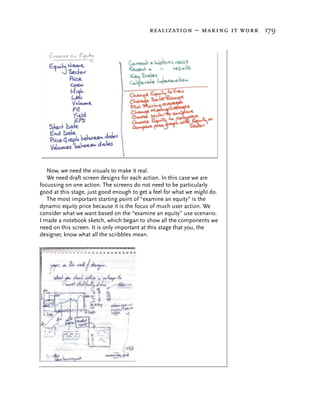 REALIZATION – MAKING IT WORK 179
Examine an Equity
Equity Name
Sector
Price
Open
High
Low
Volume
PE
Yield
EPS
Start Date
End Date
Price Graph between dates
Volumes between dates
Current & historic news
Recent results
Key Dates
Corporate Information
Change Equity to View
Change Date Range
Plot Moving averages
Change Moving Averages
Choose Sector to compare
Choose Equity to compare
Compare price graph with Equity or
Sector
Now, we need the visuals to make it real.
We need draft screen designs for each action. In this case we are
focussing on one action. The screens do not need to be particularly
good at this stage, just good enough to get a feel for what we might do.
The most important starting point of "examine an equity" is the
dynamic equity price because it is the focus of much user action. We
consider what we want based on the "examine an equity" use scenario.
I made a notebook sketch, which began to show all the components we
need on this screen. It is only important at this stage that you, the
designer, know what all the scribbles mean.